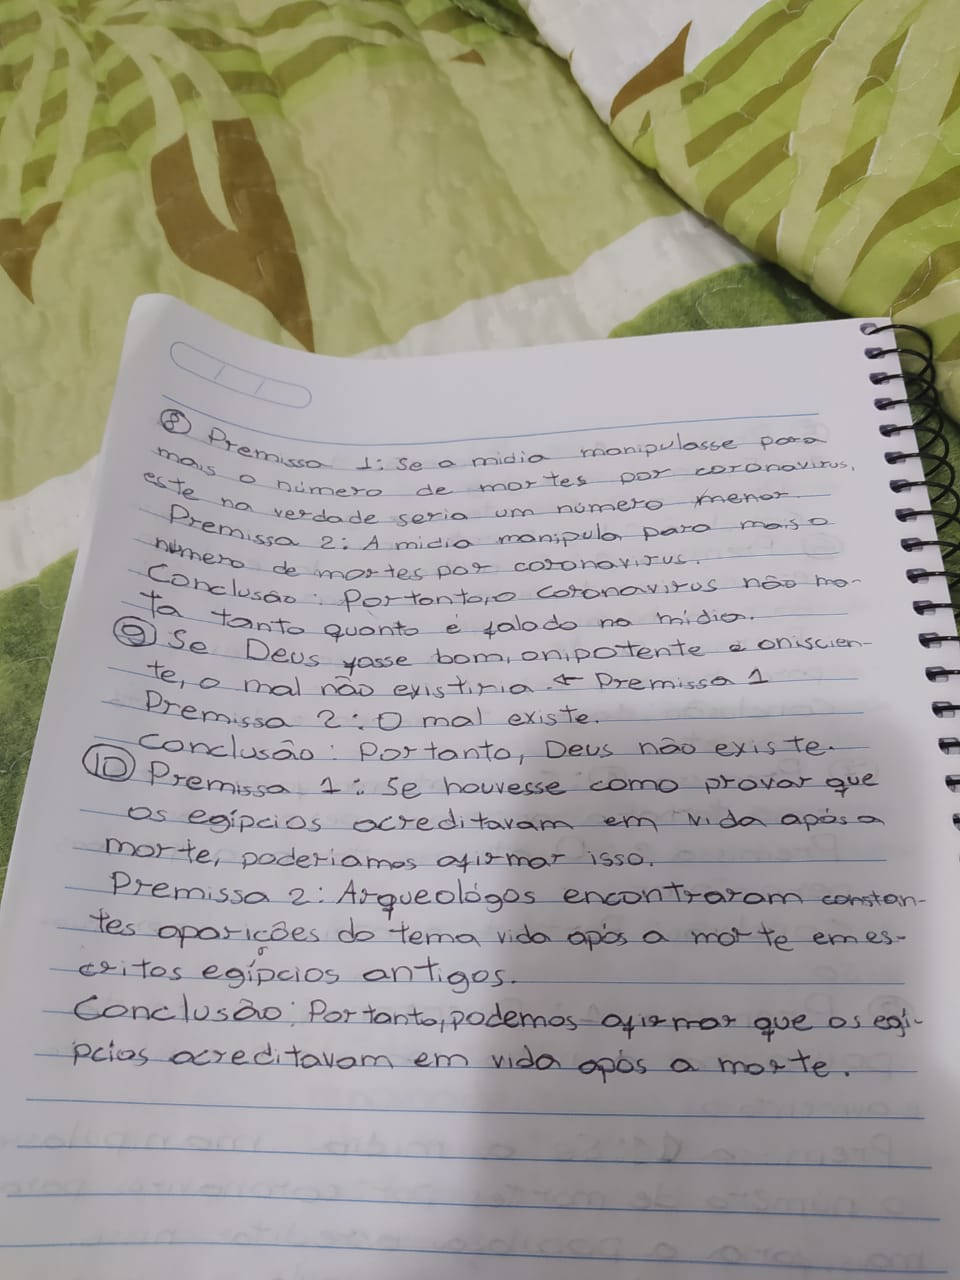 8 Premissa 1: Se a mídia manipulasse para
mais o número de mortes por coronavírus,
este na verdade seria um número menor.
Premissa 2: A mídia manipula para mais o
número de mortes por coronavírus.
Conclusão: Portanto, o coronavírus não ma-
ta tanto quanto é falado na mídia.
9 Se Deus fosse bom, onipotente e oniscien-
te, o mal não existiria. ← Premissa 1
Premissa 2: O mal existe.
Conclusão: Portanto, Deus não existe.
10 Premissa 1: Se houvesse como provar que
os egípcios acreditavam em vida após a
morte, poderíamos afirmar isso.
Premissa 2: Arqueológos encontraram constan-
tes aparições do tema vida após a morte em es-
critos egípcios antigos.
Conclusão: Portanto, podemos afirmar que os egí-
pcios acreditavam em vida após a morte.